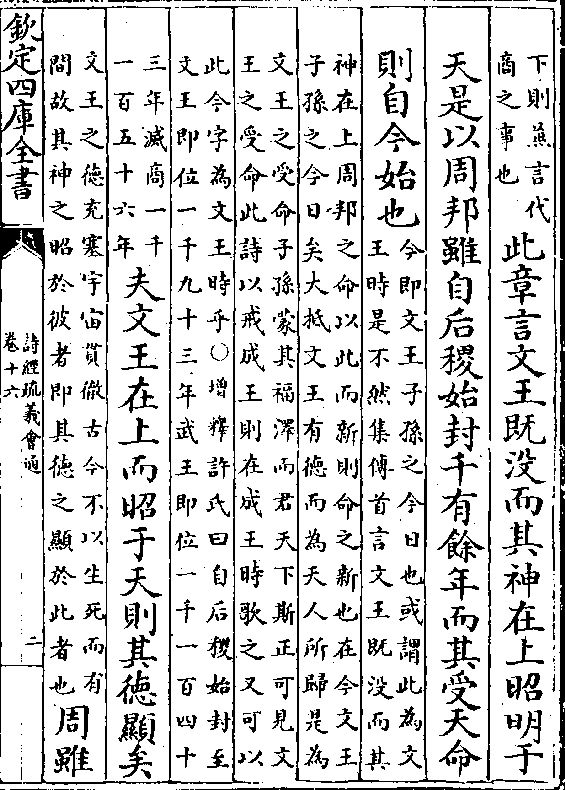 下則無言代
商之事也
此章言文王既没而其神在上昭明于
天是以周邦雖自后稷始封千有餘年而其受天命
則自今始也
今即文王子孫之今日也或謂此為文
王時是不然集傳首言文王既没而其
神在上周邦之命以此而新則命之新也在今文王
子孫之今日矣大抵文王有德而為天人所歸是為
文王之受命子孫蒙其福澤而君天下斯正可見文
王之受命此詩以戒成王則在成王時歌之又可以
此今字為文王時乎○增釋許氏曰自后稷始封至
文王即位一千九十三年武王即位一千一百四十
三年滅商一千
一百五十六年
夫文王在上而昭于天則其德顯矣
文王之德充塞宇宙貫徹古今不以生死而有
間故其神之昭於彼者即其德之顯於此者也
周雖
欽定四庫全書
詩經疏義會通
卷十六
二